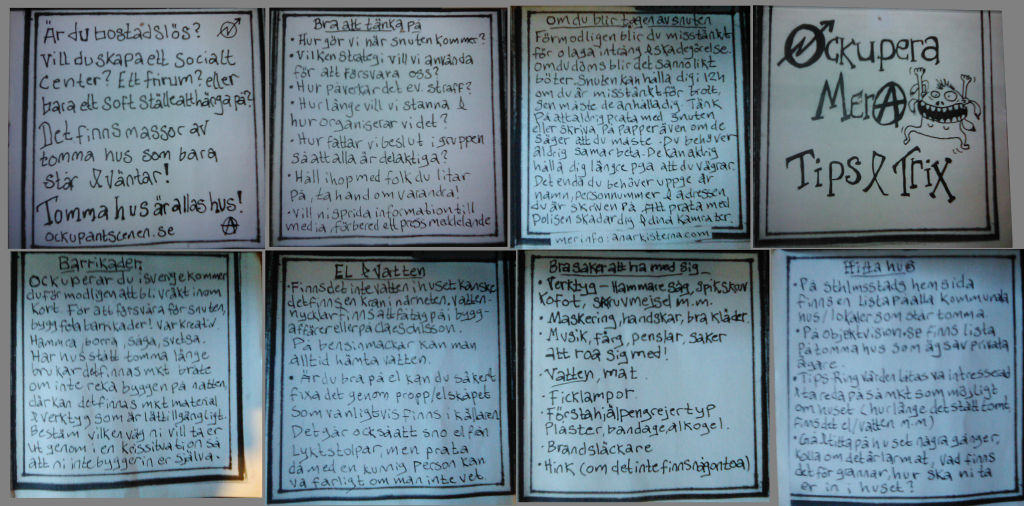 Är du bostadslös?
Vill du skapa ett Socialt
Center? Ett firum? eller
bara ett soft ställe att hänga på?
Det finns massor av
tomma hus som bara
står & väntar!
Tomma hus är allas hus!
ockupantscenen.se
Bra att tänka på
• Hur gör vi när snuten kommer?
• Vilken strategi vill vi använda
för att försvara oss?
• Hur påverkar det ev. straff?
• Hur länge vill vi stanna &
hur organiserar vi det?
• Hur fattar vi beslut i gruppen
så att alla är delaktiga?
• Håll ihop med folk du litar
på, ta hand om varandra!
• Vill ni sprida information till
media, förbered ett pressmeddelande
Om du blir tagen av snuten
Förmodligen blir du misstänkt
för olaga intrång & skadegörelse
om du döms blir det sannolikt
böter. Snuten kan hålla dig i 12h
om du är misstänkt för brott,
sen måste de anhålla dig. Tänk
på att aldrig prata med snuten
eller skriva på papper även om de
säger att du måste. Du behöver
aldrig samarbeta. De kan aldrig
hålla dig längre pga att du vägrar.
Det enda du behöver uppge är
namn, personnummer & adressen
du är skriven på. Att prata med
polisen skadar dig & dina kamrater.
mer info: anarkisterna.com
Ockupera
Mera
Tips & Trix
Barrikader
Ockuperar du i sverige kommer
du förmodligen att bli vräkt inom
kort. För att försvara för snuten,
bygg feta barrikader! Var kreativ.
Hamra, borra, såga, svetsa.
Har hus stått tomma länge
brukar det finnas mkt bråte
om inte reka byggen på natten,
där kan det finnas mkt material
& verktyg som är lätt tillgängligt.
Bestäm vilken väg ni vill ta er
ut genom i en krissituation så
att ni inte bygger in er själva.
El & Vatten
• Finns det inte vatten i huset kanske
det finns en kran i närheten, vatten-
nycklar finns att få tag på i bygg-
affärer eller på Claes Ohlsson.
På bensinmackar kan man
alltid hämta vatten.
• Är du bra på el kan du säkert
fixa det genom propp/elskåpet
som vanligtvis finns i källaren
Det går också att sno el från
lyktstolpar, men prata
då med en kunnig person kan
va farligt om man inte vet.
Bra saker att ha med sig
• Verktyg - Hammare, såg, spik, skruv
kofot, skruvmejsel m.m.
• Maskering, handskar, bra kläder.
• Musik, färg, penslar, saker
att roa sig med!
• Vatten, mat
• Ficklampor
• Första hjälpen grejer typ
Plåster, bandage, alkogel.
• Brandsläckare
• Hink (om det inte finns någon toa)
Hitta hus
• På sthlmsstads hemsida
finns en lista på alla kommunala
hus/lokaler som står tomma
• På objektvision.se finns lista
på tomma hus som ägs av privata
ägare.
• Tips: Ring värden låtsas va intresserad
& ta reda på så mkt som möjligt
om huset (hur länge det stått tomt,
finns det el/vatten m.m)
• Gå & titta på huset några gånger,
kolla om det är larmat, vad finns
det för grannar, hur ska ni ta
er in i huset?